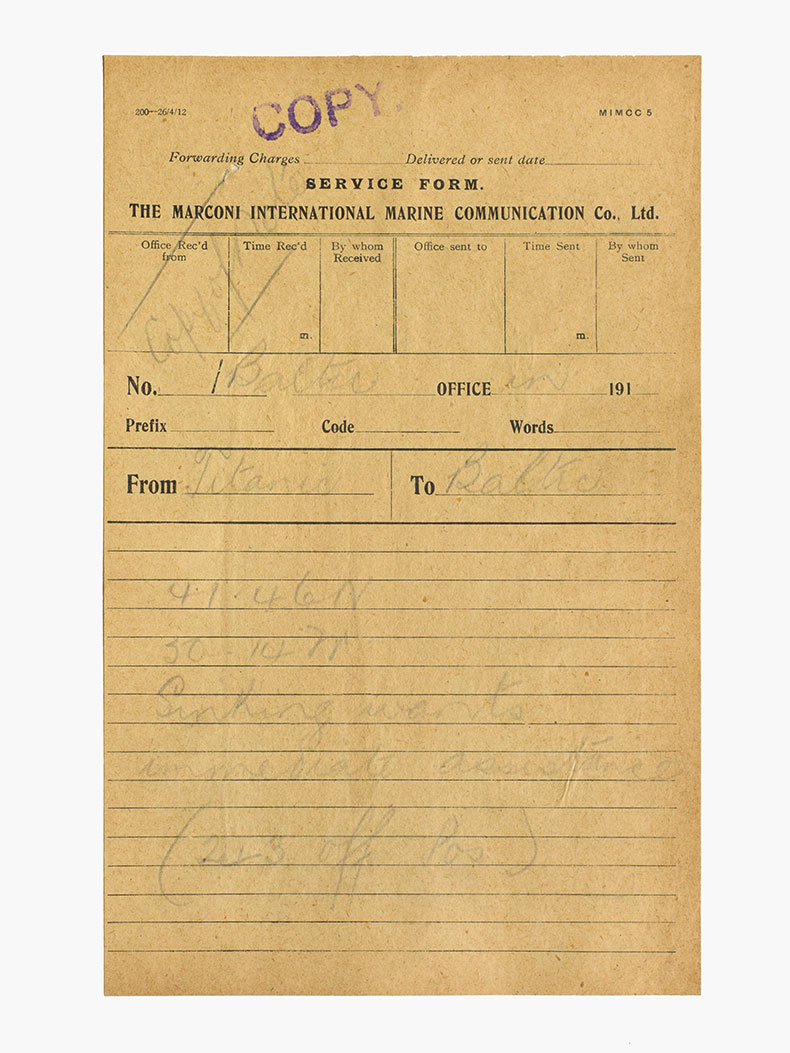 200—26/4/12
COPY.
MIMCC 5
Forwarding Charges Delivered or sent date
SERVICE FORM.
THE MARCONI INTERNATIONAL MARINE COMMUNICATION Co., Ltd.
Office Rec'd from
Time Rec'd
By whom Received
Office sent to
Time Sent
By whom Sent
m.
m.
No. 1 Baltic OFFICE in 191
Prefix Code Words
From Titanic To Baltic
41.46N
50-14W
Sinking wants
immediate assistance
(243 off Pos)